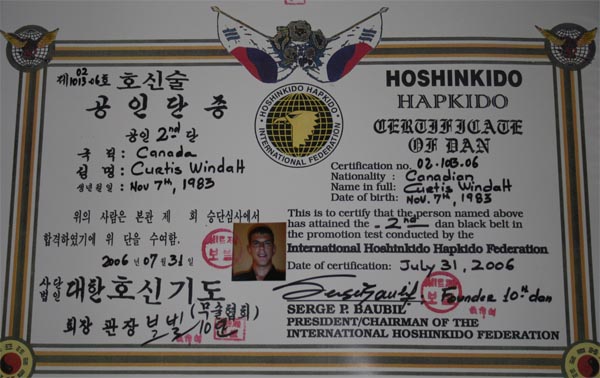 제 02
1013-06호 호신술
공인단증
공인 2nd 단
국적 : Canada
성명 : Curtis Windatt
생년월일 : Nov 7th, 1983
위의 사람은 본관 제 회 승단심사에서
합격하였기에 위 단을 수여함.
2006 년 07 月 31 日
사단
법인 대한호신기도
(무술협회)
회장 관장 보빌 / 10단
HOSHINKIDO HAPKIDO
INTERNATIONAL FEDERATION
HOSHINKIDO
HAPKIDO
CERTIFICATE
OF DAN
Certification no. 02-103-06
Nationality : Canadian
Name in full: Curtis Windatt
Date of birth: Nov. 7th, 1983
This is to certify that the person named above
has attained the 2nd dan black belt in
the promotion test conducted by the
International Hoshinkido Hapkido Federation
Date of certification: July 31, 2006
Serge Baubil, Founder 10th dan
SERGE P. BAUBIL
PRESIDENT/CHAIRMAN OF THE
INTERNATIONAL HOSHINKIDO FEDERATION